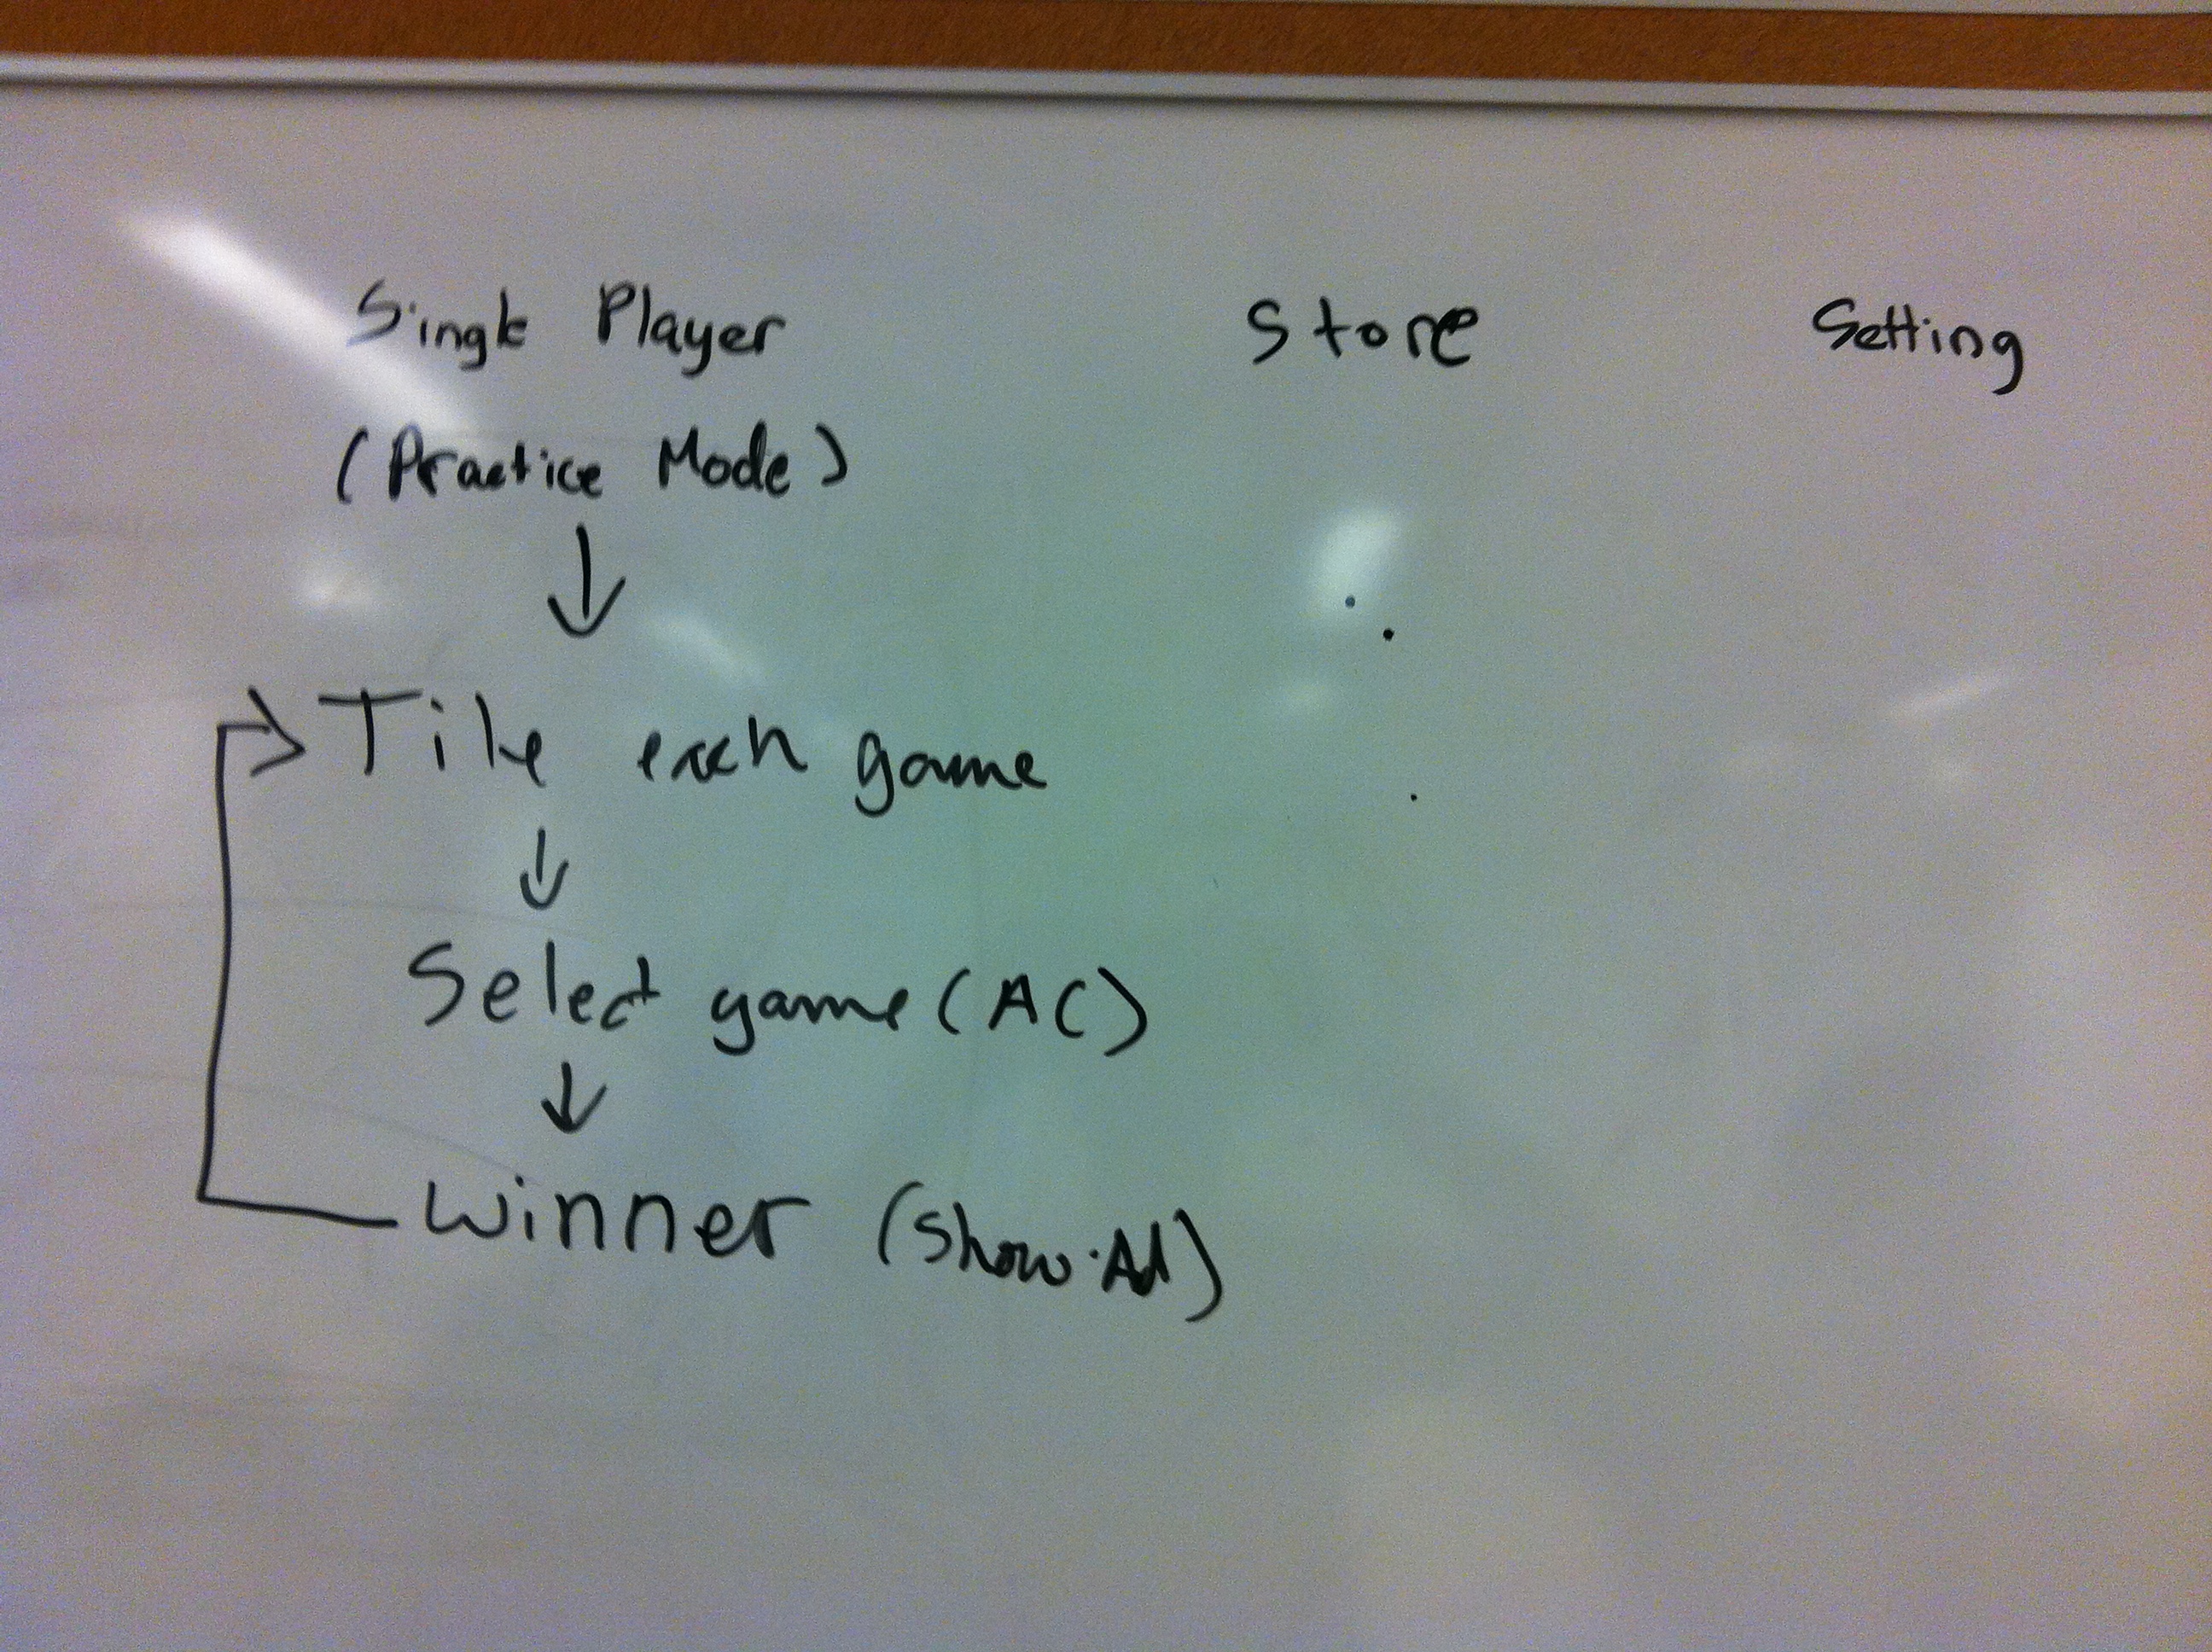 Single Player Store Setting
(Practice Mode)
Tile each game
Select game (AC)
Winner (Show Ad)